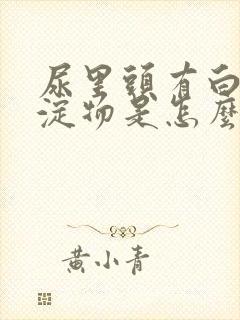 尿里頭有白
淀物是怎麼
黄小青